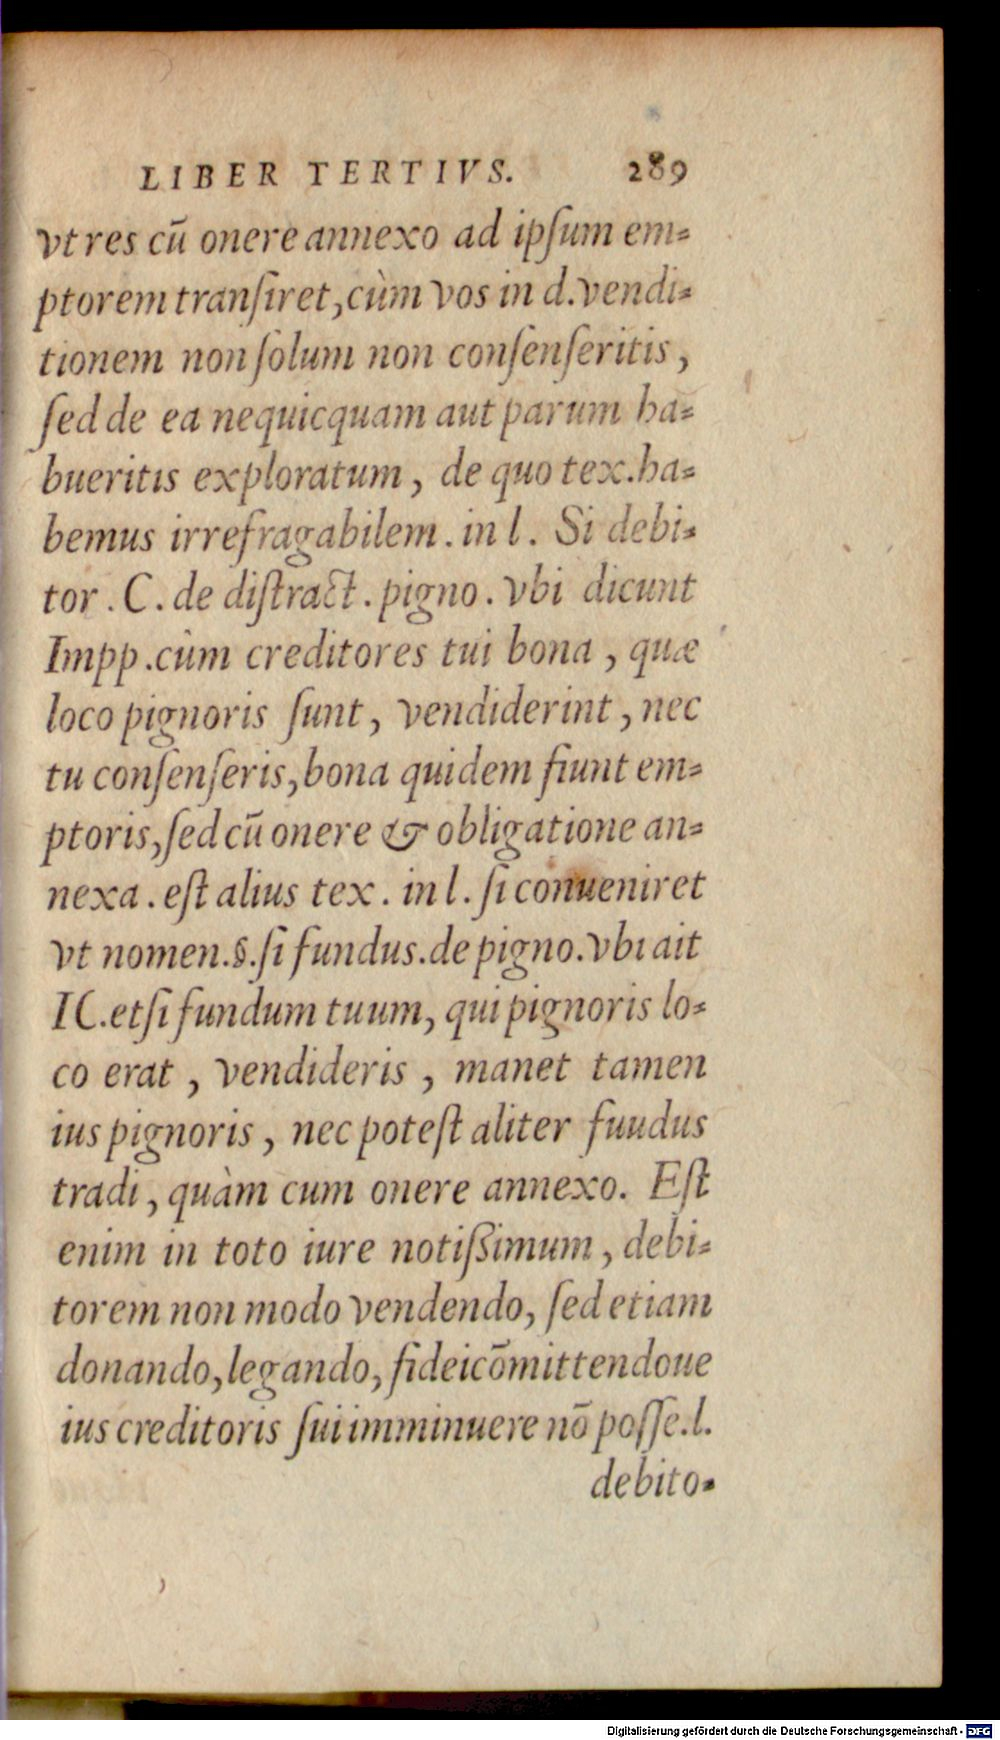 LIBER TERTIVS. 289
vt res cū onere annexo ad ipſum em-
ptorem tranſiret, cùm vos in d. vendi-
tionem non ſolum non conſenſeritis,
ſed de ea nequicquam aut parum ha-
bueritis exploratum, de quo tex. ha-
bemus irrefragabilem. in l. Si debi-
tor. C. de diſtract. pigno. vbi dicunt
Impp. cùm creditores tui bona, quæ
loco pignoris ſunt, vendiderint, nec
tu conſenſeris, bona quidem fiunt em-
ptoris, ſed cū onere & obligatione an-
nexa. eſt alius tex. in l. ſi conueniret
vt nomen. §. ſi fundus. de pigno. vbi ait
IC. etſi fundum tuum, qui pignoris lo-
co erat, vendideris, manet tamen
ius pignoris, nec poteſt aliter fuudus
tradi, quàm cum onere annexo. Eſt
enim in toto iure notißimum, debi-
torem non modo vendendo, ſed etiam
donando, legando, fideicōmittendoue
ius creditoris ſui imminuere nō poſſe. l.
debito-
Digitalisierung gefördert durch die Deutsche Forschungsgemeinschaft - DFG